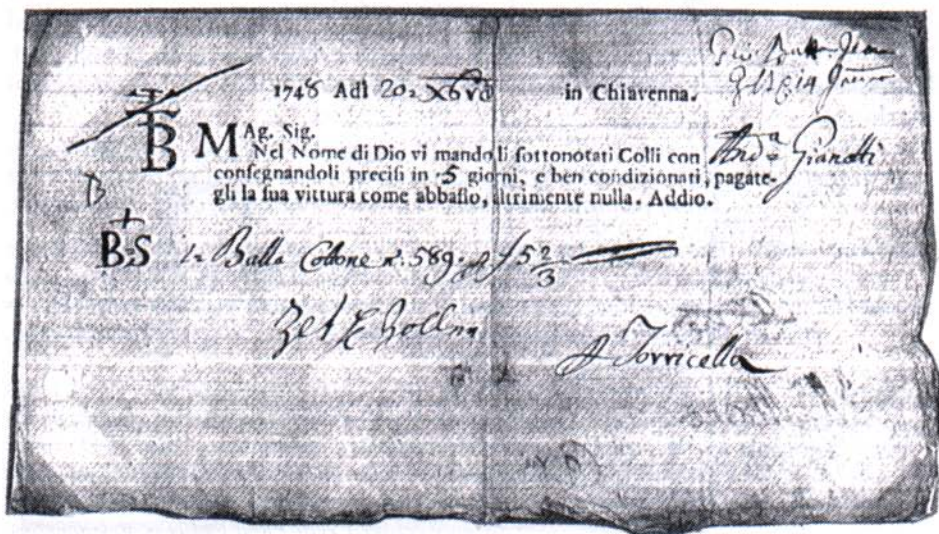 1748 Adì 20 Xbre in Chiavenna.
B MAg. Sig.
Nel Nome di Dio vi mando li sottonotati Colli con Andª Gianotti
consegnandoli precisi in 5 giorni, e ben condizionati, pagate-
gli la sua vittura come abbasso, altrimente nulla. Addio.
B
B S 1 Balla Cottone nº. 589. 5 2/3
Torricella